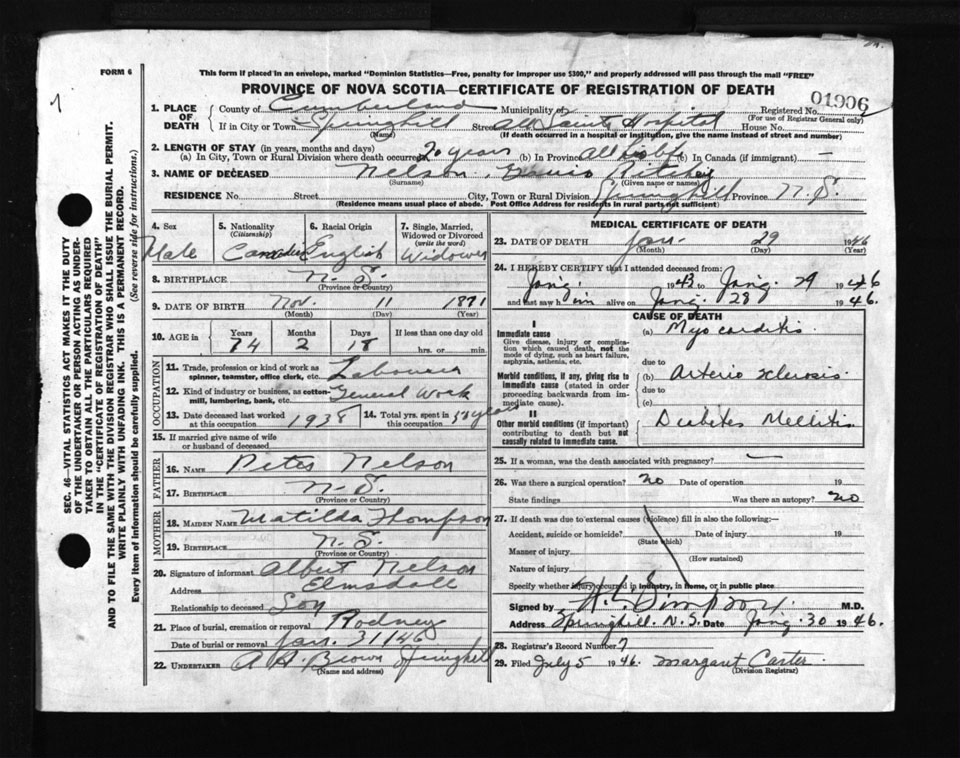 FORM 6
This form if placed in an envelope, marked "Dominion Statistics—Free, penalty for improper use $300," and properly addressed will pass through the mail "FREE"
PROVINCE OF NOVA SCOTIA—CERTIFICATE OF REGISTRATION OF DEATH
1. PLACE OF DEATH County of Cumberland Municipality of Registered No. 01906
(For use of Registrar General only)
If in City or Town Springhill Street All Saints Hospital House No.
(Name) (If death occurred in a hospital or institution, give the name instead of street and number)
2. LENGTH OF STAY (in years, months and days)
(a) In City, Town or Rural Division where death occurred 20 years (b) In Province All his life (c) In Canada (if immigrant) —
3. NAME OF DECEASED Nelson, Ritchey
(Surname) (Given name or names)
RESIDENCE No. Street City, Town or Rural Division Springhill Province N.S.
(Residence means usual place of abode. Post Office Address for residents in rural parts not sufficient)
4. Sex Male
5. Nationality (Citizenship) Canadian
6. Racial Origin English
7. Single, Married, Widowed or Divorced (write the word) Widower
8. BIRTHPLACE N.S.
(Province or Country)
9. DATE OF BIRTH Nov. 11 1871
(Month) (Day) (Year)
10. AGE in Years 74 Months 2 Days 18 If less than one day old hrs. or min.
OCCUPATION
11. Trade, profession or kind of work as spinner, teamster, office clerk, etc. Labourer
12. Kind of industry or business, as cotton-mill, lumbering, bank, etc. General Work
13. Date deceased last worked at this occupation 1938
14. Total yrs. spent in this occupation 50 years
15. If married give name of wife or husband of deceased
FATHER
16. NAME Peter Nelson
17. BIRTHPLACE N.S.
(Province or Country)
MOTHER
18. MAIDEN NAME Matilda Thompson
19. BIRTHPLACE N.S.
(Province or Country)
20. Signature of informant Albert Nelson
Address Elmsdale
Relationship to deceased Son
21. Place of burial, cremation or removal Rodney
Date of burial or removal Jan. 31/46
22. UNDERTAKER A H. Brown Springhill
(Name and address)
MEDICAL CERTIFICATE OF DEATH
23. DATE OF DEATH Jan. 29 1946
(Month) (Day) (Year)
24. I HEREBY CERTIFY that I attended deceased from:
Jany. 1943 to Jany. 29 1946
and last saw him alive on Jany. 28 1946.
CAUSE OF DEATH
I
Immediate cause
Give disease, injury or complication which caused death, not the mode of dying, such as heart failure, asphyxia, asthenia, etc.
(a) Myocarditis
due to
Morbid conditions, if any, giving rise to immediate cause (stated in order proceeding backwards from immediate cause).
(b) Arterio sclerosis
due to
(c)
II
Other morbid conditions (if important) contributing to death but not causally related to immediate cause.
Diabetes Mellitis
25. If a woman, was the death associated with pregnancy? —
26. Was there a surgical operation? no Date of operation 19
State findings Was there an autopsy? no
27. If death was due to external causes (violence) fill in also the following:—
Accident, suicide or homicide? Date of injury 19
(State which)
Manner of injury
(How sustained)
Nature of injury
Specify whether injury occurred in industry, in home, or in public place
Signed by Simpson M.D.
Address Springhill. N.S. Date Jany. 30 1946.
28. Registrar's Record Number 7
29. Filed July 5 1946. Margaret Carter.
(Division Registrar)
SEC. 46—VITAL STATISTICS ACT MAKES IT THE DUTY
OF THE UNDERTAKER OR PERSON ACTING AS UNDER-
TAKER TO OBTAIN ALL THE PARTICULARS REQUIRED
IN THE "CERTIFICATE OF REGISTRATION OF DEATH"
AND TO FILE THE SAME WITH THE DIVISION REGISTRAR WHO SHALL ISSUE THE BURIAL PERMIT.
WRITE PLAINLY WITH UNFADING INK. THIS IS A PERMANENT RECORD.
Every item of information should be carefully supplied. (See reverse side for instructions.)